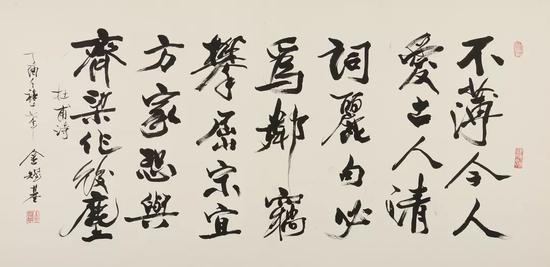 不薄今人
愛古人清
詞麗句必
為鄰竊
攀屈宋宜
方家恐與
齊梁作後塵
杜甫詩
丁酉 金耀基